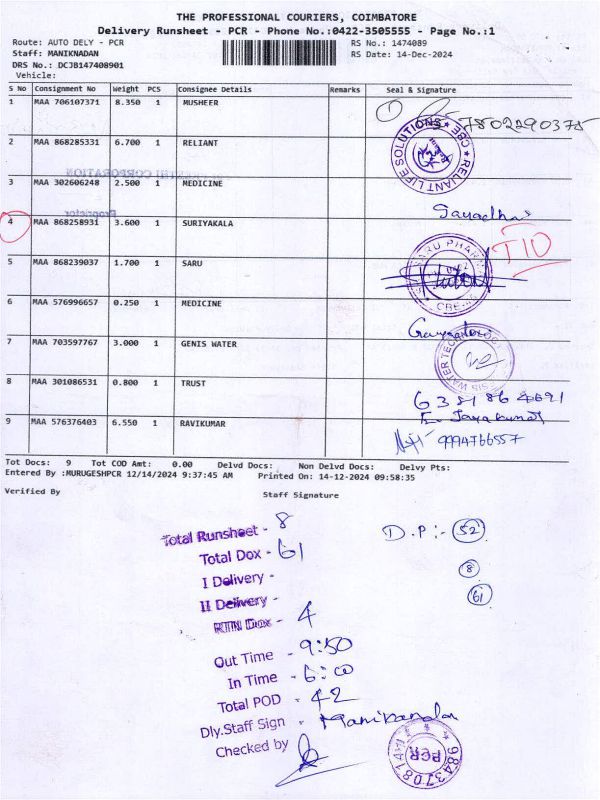 THE PROFESSIONAL COURIERS, COIMBATORE
Delivery Runsheet - PCR - Phone No.:0422-3505555 - Page No.:1
Route: AUTO DELY - PCR RS No.: 1474089
Staff: MANIKNADAN RS Date: 14-Dec-2024
DRS No.: DCJB147408901
Vehicle:
S No Consignment No Weight PCS Consignee Details Remarks Seal & Signature
1 MAA 706107371 8.350 1 MUSHEER 7502290375
2 MAA 868285331 6.700 1 RELIANT RELIANT LIFE SOLUTIONS ★ CBE ★
3 MAA 302606248 2.500 1 MEDICINE
CORPORATION
Proprietor
4 MAA 868258931 3.600 1 SURIYAKALA T10
5 MAA 868239037 1.700 1 SARU SARU PHARMA CBE
6 MAA 576996657 0.250 1 MEDICINE
7 MAA 703597767 3.000 1 GENIS WATER
8 MAA 301086531 0.800 1 TRUST 6381864691
E. Jayakumar
9 MAA 576376403 6.550 1 RAVIKUMAR 9994766557
Tot Docs: 9 Tot COD Amt: 0.00 Delvd Docs: Non Delvd Docs: Delvy Pts:
Entered By :MURUGESHPCR 12/14/2024 9:37:45 AM Printed On: 14-12-2024 09:58:35
Verified By Staff Signature
Total Runsheet - 8
D.P:- 52
Total Dox - 61
8
I Delivery -
61
II Delivery -
RTN Dox - 4
Out Time - 9:50
In Time - 6:00
Total POD - 42
Dly.Staff Sign - Manikandan
Checked by
PCR